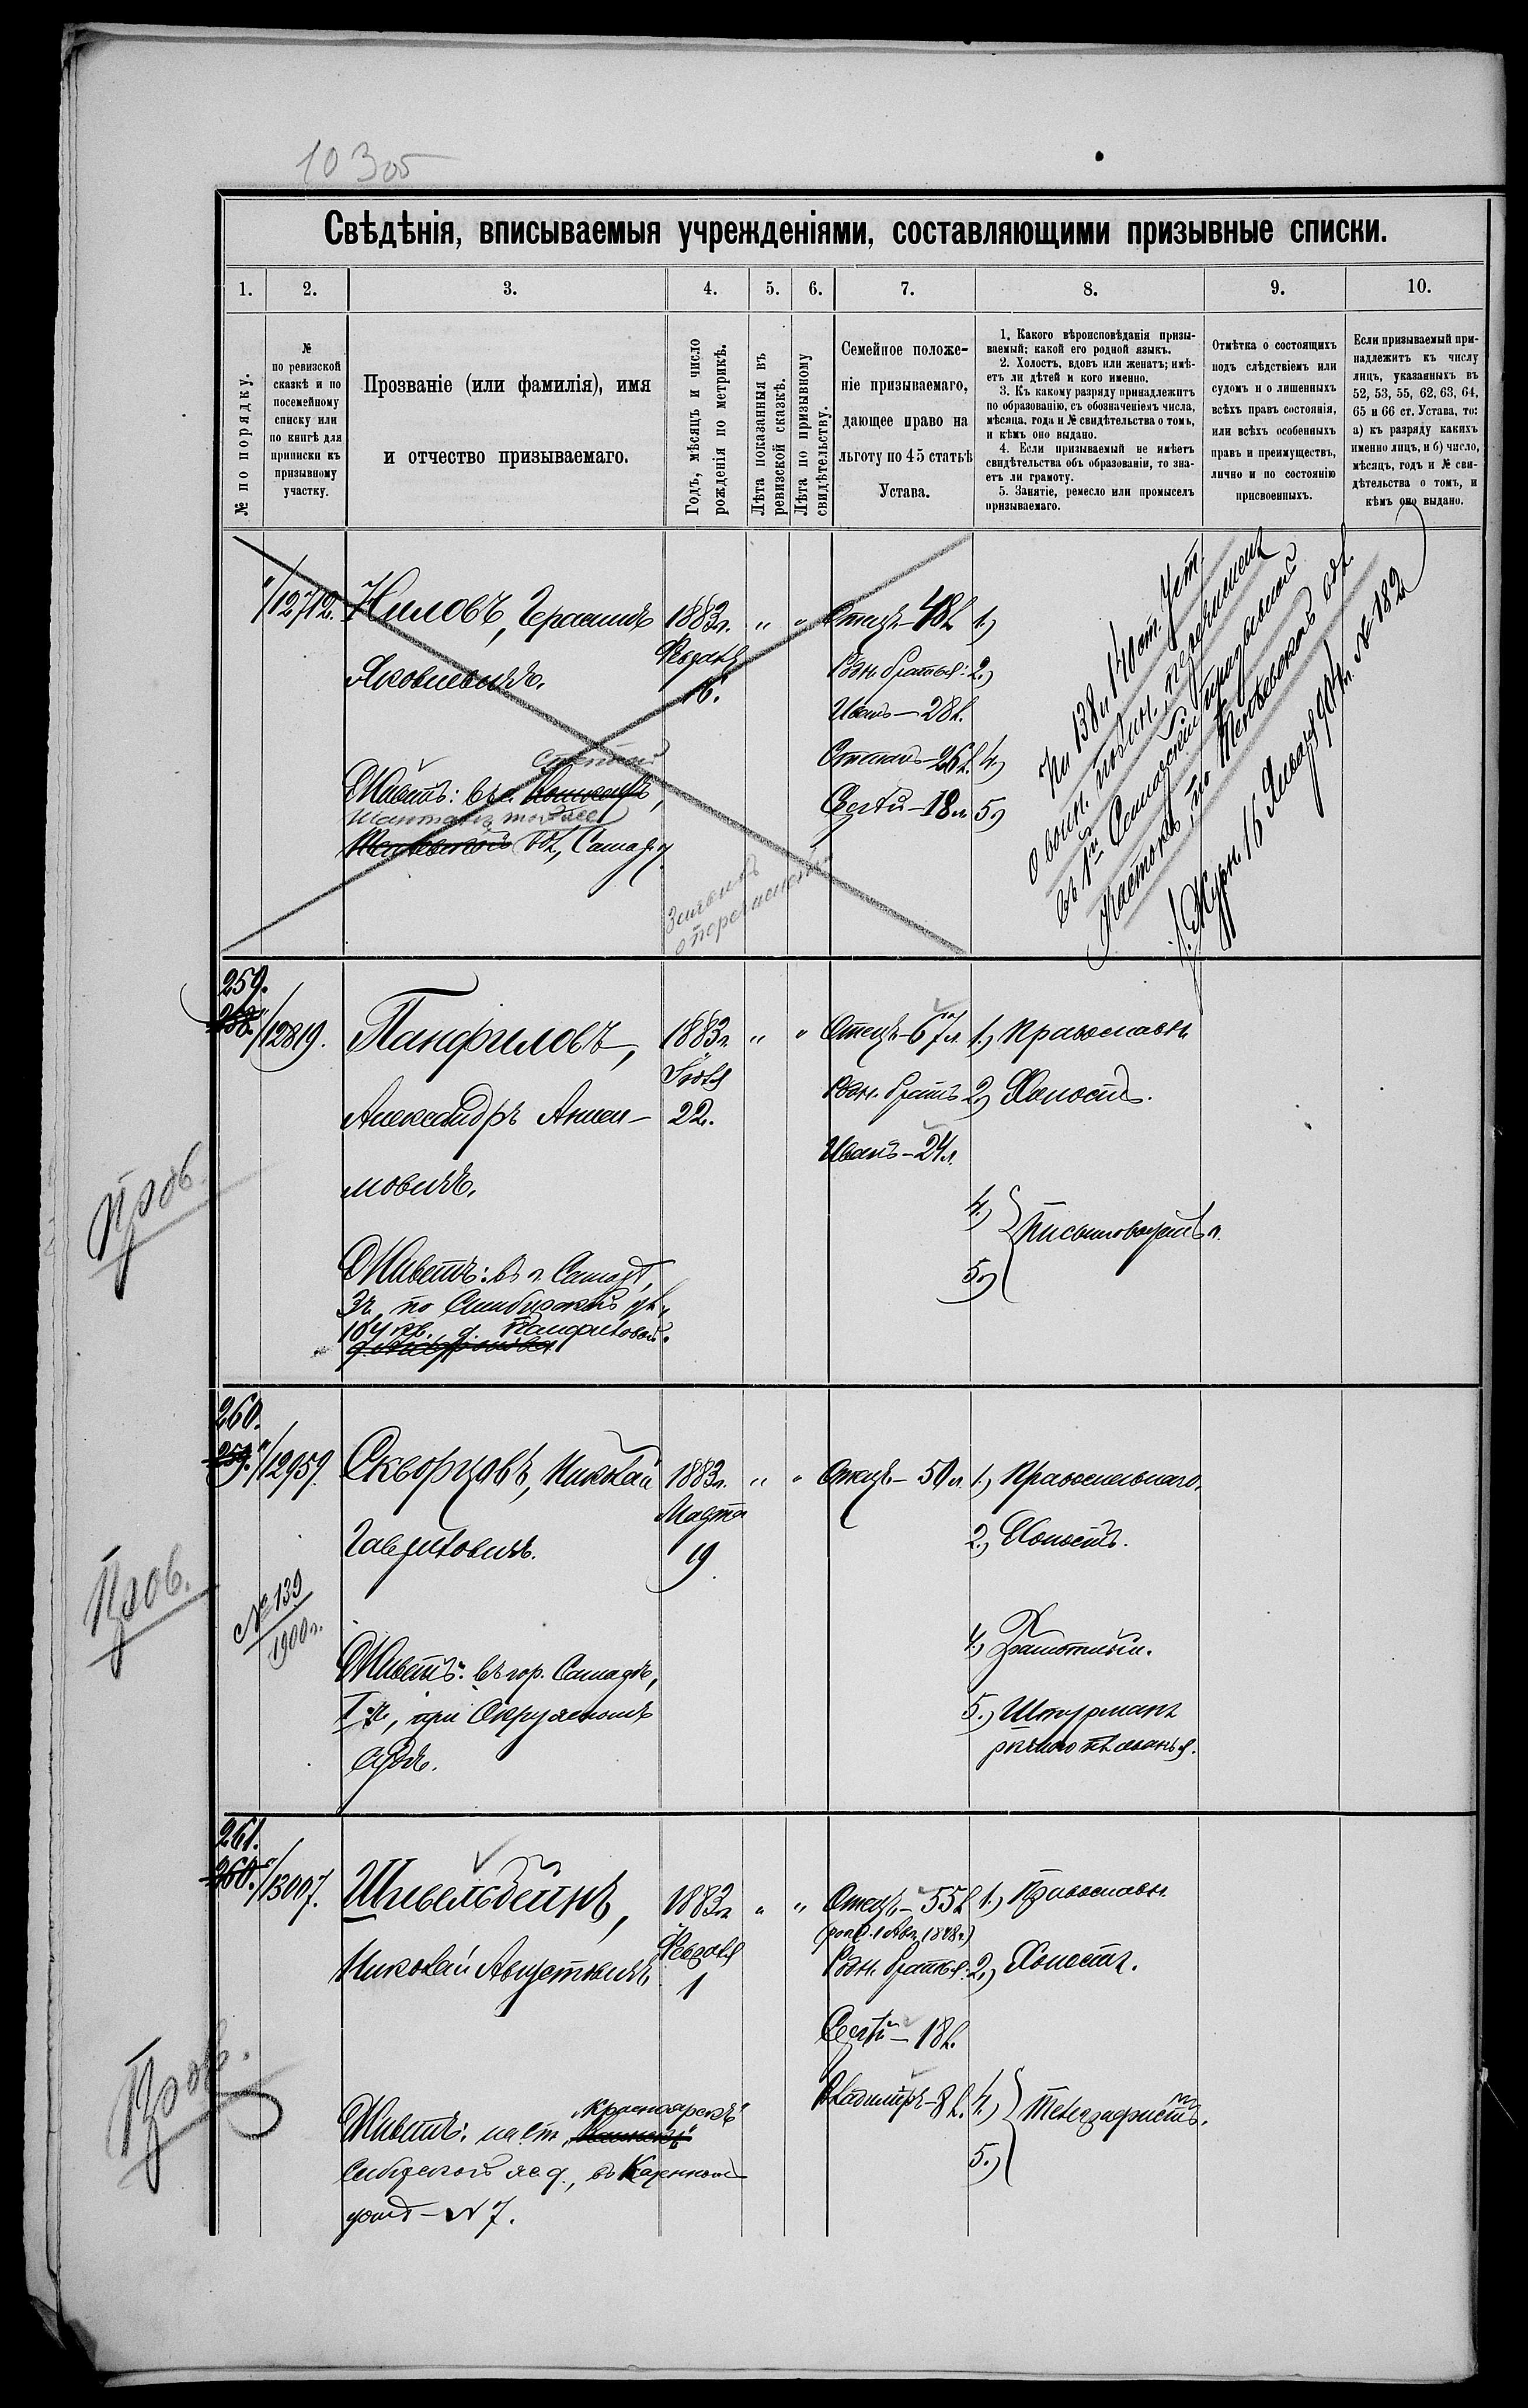 10305
Свѣдѣнія, вписываемыя учрежденіями, составляющими призывные списки.
1. 2. 3. 4. 5. 6. 7. 8. 9. 10.
№ по порядку.
№
по ревизской
сказкѣ и по
посемейному
списку или
по книгѣ для
приписки къ
призывному
участку.
Прозваніе (или фамилія), имя
и отчество призываемаго.
Годъ, мѣсяцъ и число
рожденія по метрикѣ.
Лѣта показанныя въ
ревизской сказкѣ.
Лѣта по призывному
свидѣтельству.
Семейное положе-
ніе призываемаго,
дающее право на
льготу по 45 статьѣ
Устава.
1. Какого вѣроисповѣданія призы-
ваемый; какой его родной языкъ.
2. Холостъ, вдовъ или женатъ; имѣ-
етъ ли дѣтей и кого именно.
3. Къ какому разряду принадлежитъ
по образованію, съ обозначеніемъ числа,
мѣсяца, года и № свидѣтельства о томъ,
и кѣмъ оно выдано.
4. Если призываемый не имѣетъ
свидѣтельства объ образованіи, то зна-
етъ ли грамоту.
5. Занятіе, ремесло или промыселъ
призываемаго.
Отмѣтка о состоящихъ
подъ слѣдствіемъ или
судомъ и о лишенныхъ
всѣхъ правъ состоянія,
или всѣхъ особенныхъ
правъ и преимуществъ,
лично и по состоянію
присвоенныхъ.
Если призываемый при-
надлежитъ къ числу
лицъ, указанныхъ въ
52, 53, 55, 62, 63, 64,
65 и 66 ст. Устава, то:
а) къ разряду какихъ
именно лицъ, и б) число,
мѣсяцъ, годъ и № сви-
дѣтельства о томъ, и
кѣмъ оно выдано.
"/12712.
Ниловъ, Герасимъ
Яковлевичъ.
Живетъ: въ с.
вол., Самар. у.
1883г.
Февраля
16.
" "
Отецъ – 48 л.
Родн. братья:
Иванъ – 28 л.
Степанъ – 26 л.
Сергѣй – 18 л.
1.)
2.)
4.)
5.)
По 138 и 140 ст. Уст.
о воин. повин. перечисленъ
въ 1й Самарскій призывной
участокъ, по вол.
Журн. 16 Января 904 г. № 182
Заявилъ
о перечисленіи
259.
258. "/12819.
Панфиловъ,
Александръ Аким-
мовичъ.
Живетъ: въ г. Самарѣ,
3ч. по Симбирской ул.,
104 кв. д. Панфиловой.
1883г.
Іюля
22.
" "
Отецъ – 67 л.
Родн. братъ
Иванъ – 24 л.
1.) Православн.
2.) Холостъ.
4.)
5.)
Письмоводитель.
Пров.
260.
259. "/12959.
Скворцовъ, Николай
Гавриловичъ.
№ 139
1900 г.
Живетъ: въ гор. Самарѣ,
I ч., при Окружномъ
Судѣ.
1883г.
Марта
19
" "
Отецъ – 50 л.
1.) Православнаго.
2.) Холостъ.
4.) Грамотный.
5.) Штурманъ
рѣчного плаванья.
Пров.
261.
260. "/13007.
Шивельбейнъ,
Николай Августовичъ
Живетъ: на ст. „Красноярскъ"
Сибирской ж. д., въ Казенномъ
домѣ – № 7.
1883г.
Февраля
1
" "
Отецъ – 55 л.
(род. 1 Авг. 1848г.)
Родн. братья:
Сергѣй – 18 л.
Владиміръ – 8 л.
1.) Православн.
2.) Холостъ.
4.)
5.)
Телеграфистъ.
Пров.